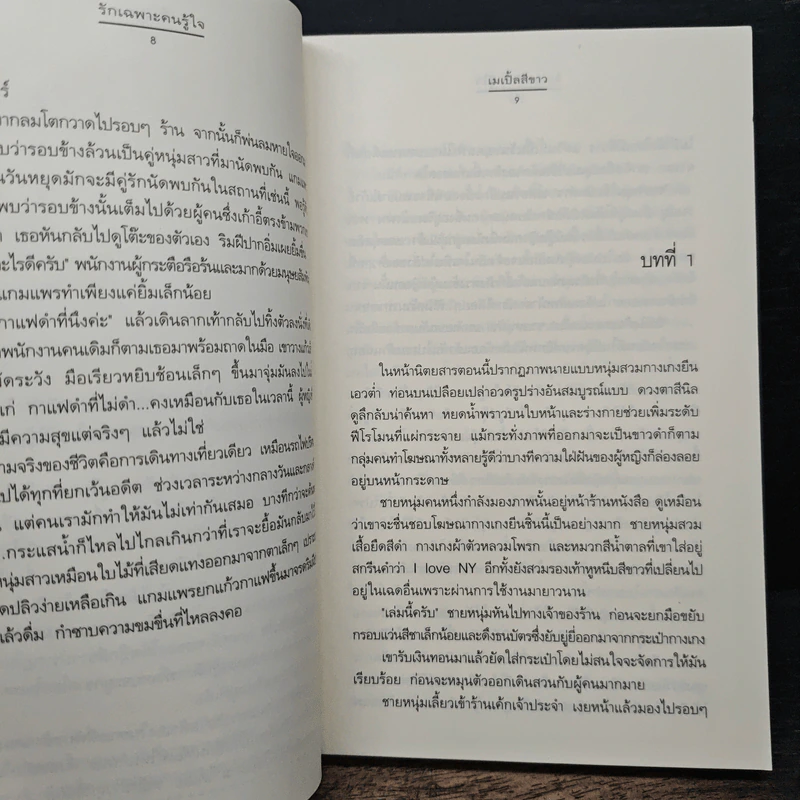 รักเฉพาะคนรู้ใจ
8
ร์
ากลมโตกวาดไปรอบๆ ร้าน จากนั้นก็พ่นลมหายใจออก
บว่ารอบข้างล้วนเป็นคู่หนุ่มสาวที่มานัดพบกัน
นวันหยุดมักจะมีคู่รักนัดพบกันในสถานที่เช่นนี้
พบว่ารอบข้างนั้นเต็มไปด้วยผู้คนซึ่งเก้าอี้ตรงข้าม
เธอหันกลับไปดูโต๊ะของตัวเอง ริมฝีปากอิ่มเผยยิ้มขึ้น
ะไรดีครับ" พนักงานผู้กระตือรือร้นและมากด้วยมนุษยสัมพันธ์
แกมแพรทำเพียงแค่ยิ้มเล็กน้อย
กาแฟดำที่นึงค่ะ" แล้วเดินลากเท้ากลับไปทิ้งตัวลงนั่งที่เดิม
พนักงานคนเดิมก็ตามเธอมาพร้อมถาดในมือ เขาวางแก้ว
ัดระวัง มือเรียวหยิบช้อนเล็กๆ ขึ้นมาจุ่มมันลงไปใน
แก่ กาแฟดำที่ไม่ดำ...คงเหมือนกับเธอในเวลานี้ ผู้หญิงที่
มีความสุขแต่จริงๆ แล้วไม่ใช่
ามจริงของชีวิตคือการเดินทางเที่ยวเดียว เหมือนรถไฟ
ปได้ทุกที่ยกเว้นอดีต ช่วงเวลาระหว่างกลางวันและกลางคืน
แต่คนเรามักทำให้มันไม่เท่ากันเสมอ บางทีกว่าจะ
...กระแสน้ำก็ไหลไปไกลเกินกว่าที่เราจะยื้อมันกลับมา
หนุ่มสาวเหมือนใบไม้ที่เสียดแทงออกมาจากตาเล็กๆ
ดปลิวง่ายเหลือเกิน แกมแพรยกแก้วกาแฟขึ้นมาจรดริมฝีปาก
ล้วดื่ม กำซาบความขมขื่นที่ไหลลงคอ
เมเปิ้ลสีขาว
9
บทที่ 1
ในหน้านิตยสารตอนนี้ปรากฏภาพนายแบบหนุ่มสวมกางเกงยีน
เอวต่ำ ท่อนบนเปลือยเปล่าอวดรูปร่างอันสมบูรณ์แบบ ดวงตาสีนิล
ดูลึกลับน่าค้นหา หยดน้ำพราวบนใบหน้าและร่างกายช่วยเพิ่มระดับ
ฟีโรโมนที่แผ่กระจาย แม้กระทั่งภาพที่ออกมาจะเป็นขาวดำก็ตาม
กลุ่มคนทำโฆษณาทั้งหลายรู้ดีว่าบางทีความใฝ่ฝันของผู้หญิงก็ล่องลอย
อยู่บนหน้ากระดาษ
ชายหนุ่มคนหนึ่งกำลังมองภาพนั้นอยู่หน้าร้านหนังสือ ดูเหมือน
ว่าเขาจะชื่นชอบโฆษณากางเกงยีนชิ้นนี้เป็นอย่างมาก ชายหนุ่มสวม
เสื้อยืดสีดำ กางเกงผ้าตัวหลวมโพรก และหมวกสีน้ำตาลที่เขาใส่อยู่
สกรีนคำว่า I love NY อีกทั้งยังสวมรองเท้าหูหนีบสีขาวที่เปลี่ยนไป
อยู่ในเฉดอื่นเพราะผ่านการใช้งานมายาวนาน
"เล่มนี้ครับ" ชายหนุ่มหันไปทางเจ้าของร้าน ก่อนจะยกมือขยับ
กรอบแว่นสีชาเล็กน้อยและดึงธนบัตรซึ่งยับยู่ยี่ออกมาจากกระเป๋ากางเกง
เขารับเงินทอนมาแล้วยัดใส่กระเป๋าโดยไม่สนใจจะจัดการให้มัน
เรียบร้อย ก่อนจะหมุนตัวออกเดินสวนกับผู้คนมากมาย
ชายหนุ่มเลี้ยวเข้าร้านเค้กเจ้าประจำ เงยหน้าแล้วมองไปรอบๆ